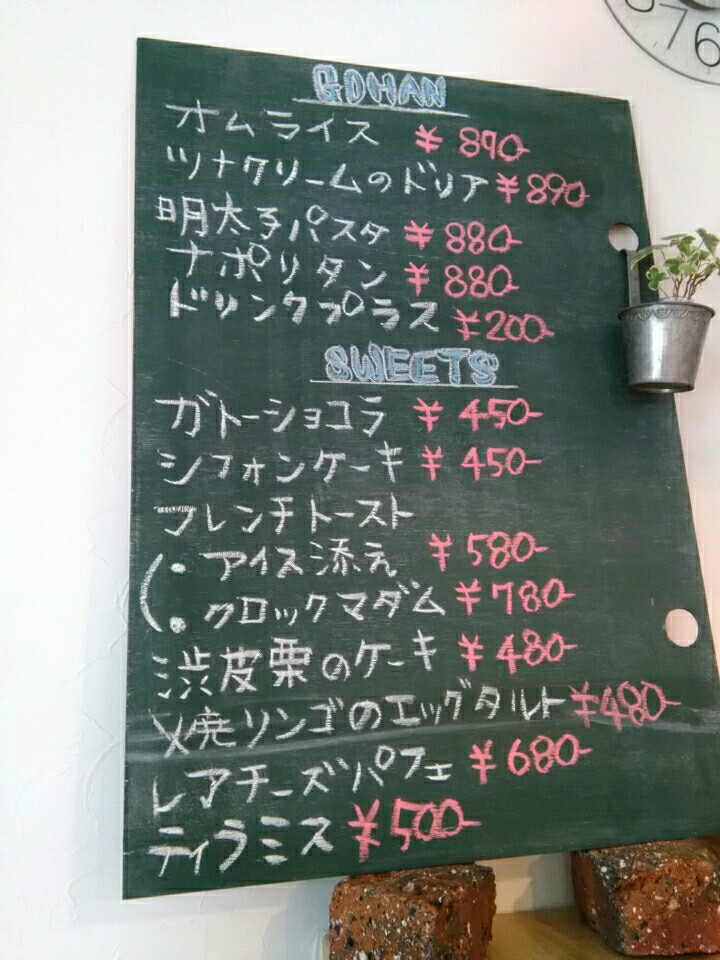 GOHAN
オムライス ¥890-
ツナクリームのドリア ¥890
明太子パスタ ¥880-
ナポリタン ¥880-
ドリンクプラス ¥200-
SWEETS
ガトーショコラ ¥450-
シフォンケーキ ¥450-
フレンチトースト
(・アイス添え ¥580-
・クロックマダム ¥780-
渋皮栗のケーキ ¥480-
焼リンゴのエッグタルト ¥480-
レアチーズパフェ ¥680-
ティラミス ¥500-
7 6